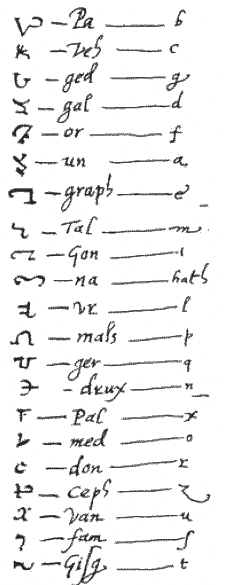 Pa — b
Veh — c
ged — g
gal — d
or — f
un — a
graph — e
Tal — m
Gon — i
na — hath
vr — l
mals — p
ger — q
drux — n
Pal — x
med — o
don — r
ceph — z
van — u
fam — ſ
Giſg — t